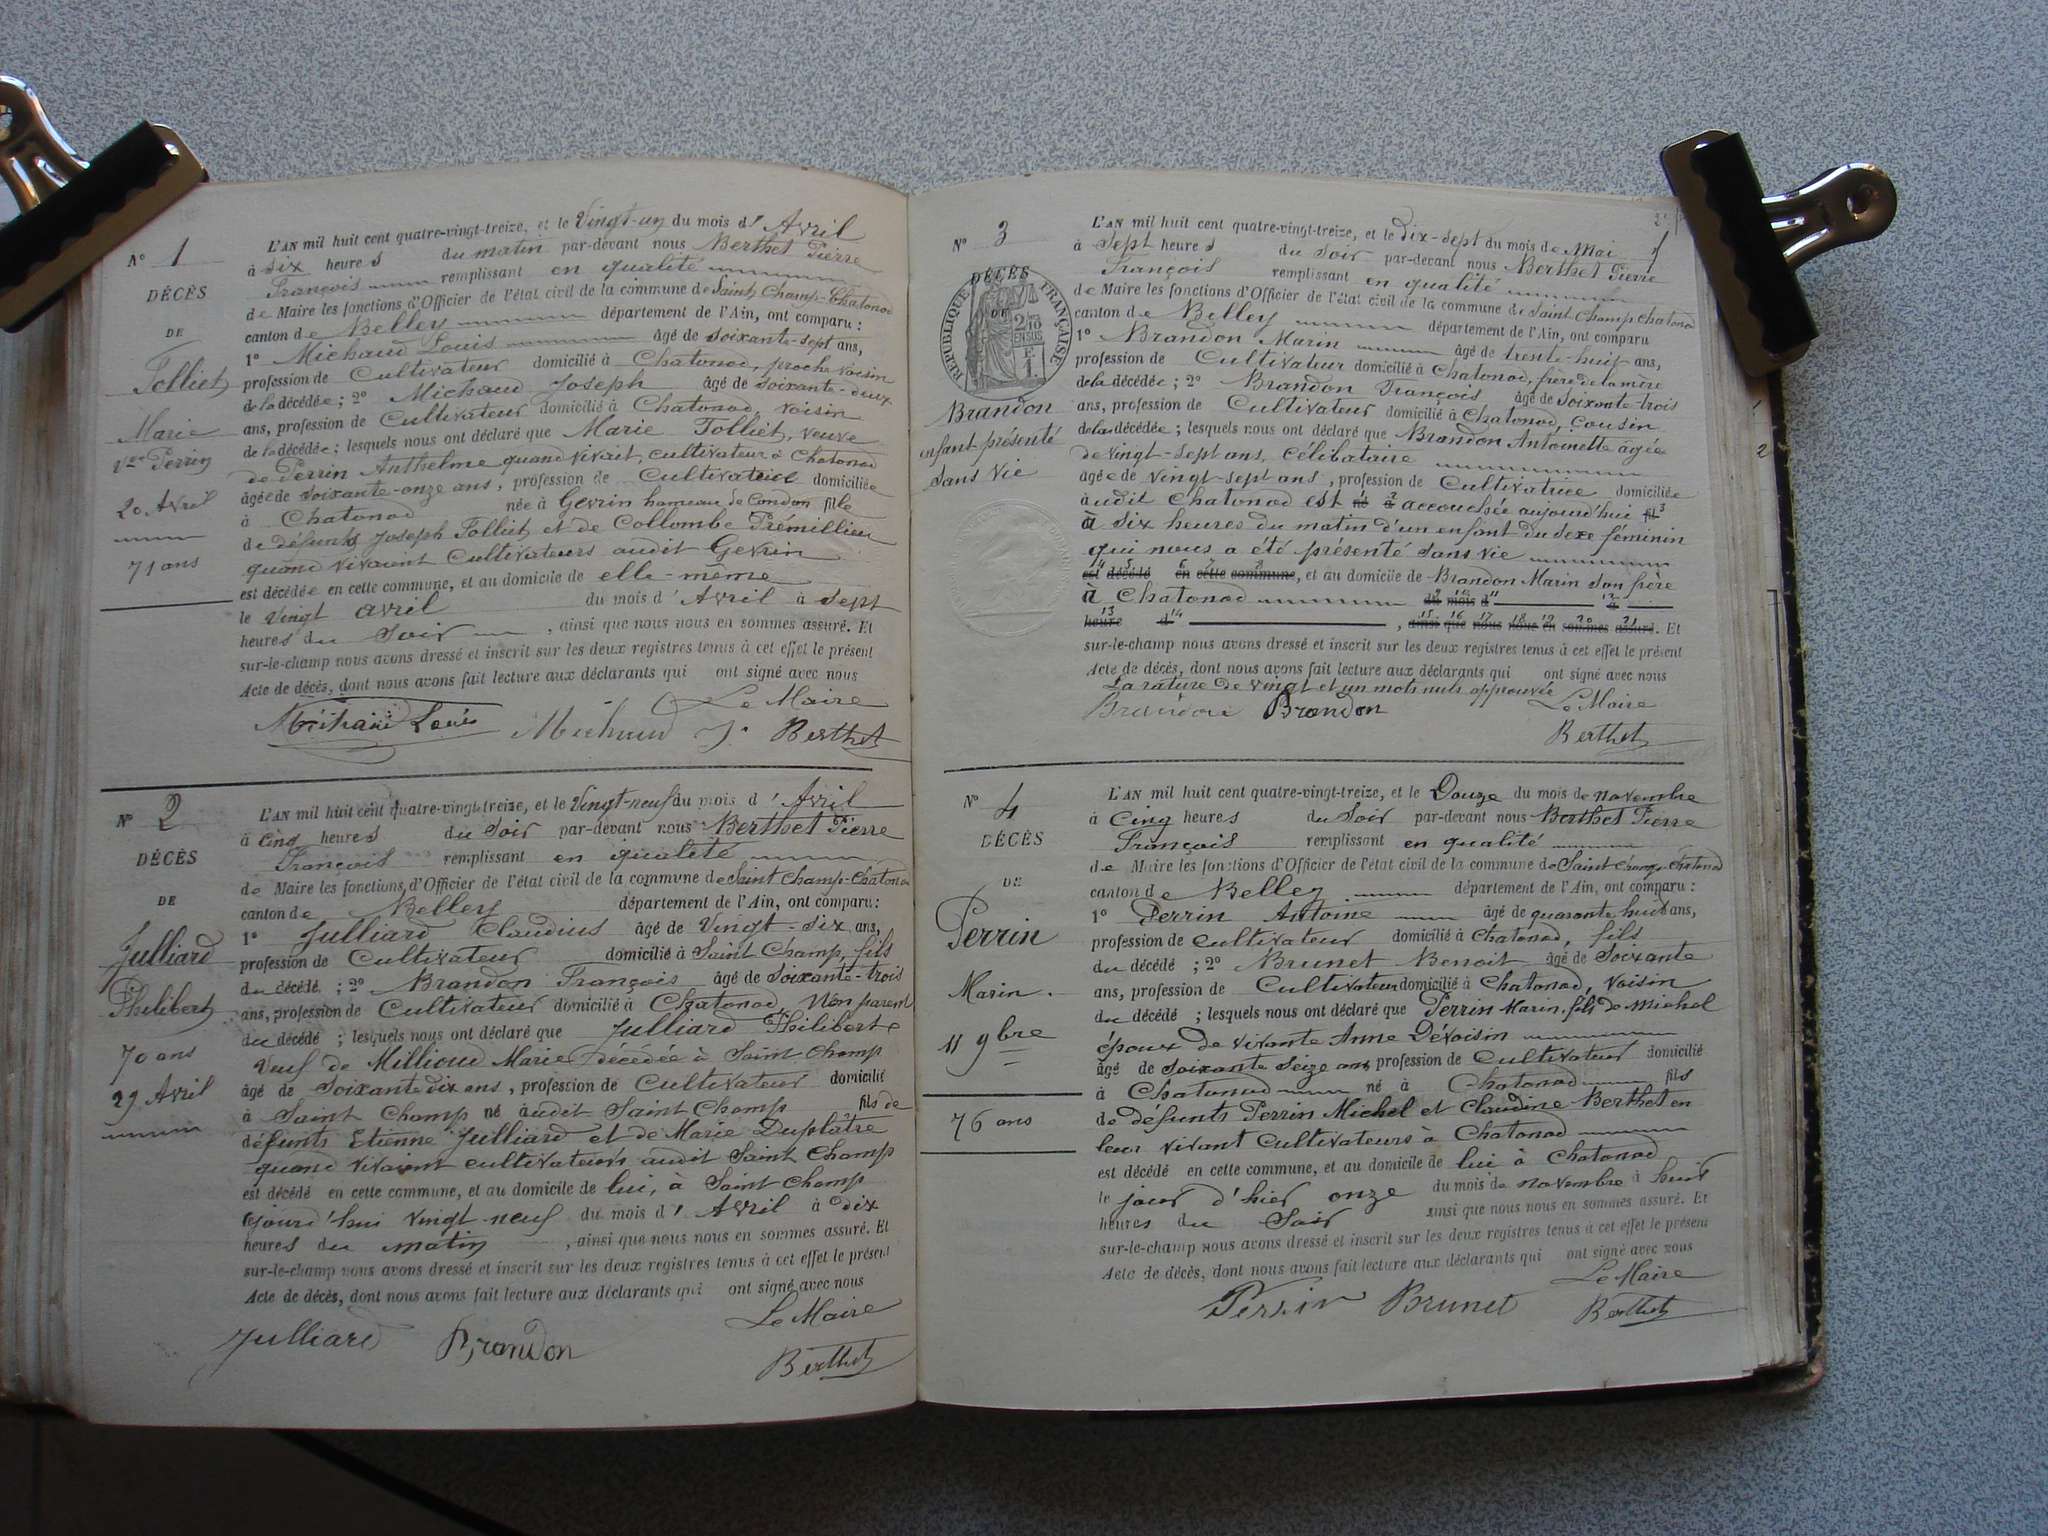 N° 1
DÉCÈS
DE
Tolliet
Marie
Vve Perrin
20 Avril
71 ans
L'AN mil huit cent quatre-vingt-treize, et le Vingt-un du mois d' Avril
à six heures du matin par-devant nous Berthet Pierre
François remplissant en qualité
de Maire les fonctions d'Officier de l'état civil de la commune de Saint Champ-Chatonod
canton de Belley département de l'Ain, ont comparu :
1° Michaud Louis âgé de soixante-sept ans,
profession de Cultivateur domicilié à Chatonod, proche voisin
de la décédée ; 2° Michaud Joseph âgé de soixante-deux
ans, profession de Cultivateur domicilié à Chatonod, voisin
de la décédée ; lesquels nous ont déclaré que Marie Tolliet, veuve
de Perrin Anthelme quand vivait, cultivateur à Chatonod
âgée de soixante-onze ans, profession de Cultivatrice domiciliée
à Chatonod née à Gevrin hameau de Condon fille
de défunts Joseph Tolliet et de Collombe Premillieu
quand vivaient Cultivateurs audit Gevrin
est décédée en cette commune, et au domicile de elle-même
le vingt avril du mois d' Avril à sept
heures du Soir , ainsi que nous nous en sommes assuré. Et
sur-le-champ nous avons dressé et inscrit sur les deux registres tenus à cet effet le présent
Acte de décès, dont nous avons fait lecture aux déclarants qui ont signé avec nous
Le Maire
Michaud Louis Michaud J. Berthet
N° 2
DÉCÈS
DE
Julliard
Philibert
70 ans
29 Avril
L'AN mil huit cent quatre-vingt-treize, et le Vingt-neuf du mois d' Avril
à cinq heures du Soir par-devant nous Berthet Pierre
François remplissant en qualité
de Maire les fonctions d'Officier de l'état civil de la commune de Saint Champ-Chatonod
canton de Belley département de l'Ain, ont comparu :
1° Julliard Claudius âgé de Vingt-six ans,
profession de Cultivateur domicilié à Saint Champ, fils
du décédé ; 2° Brandon François âgé de Soixante-trois
ans, profession de Cultivateur domicilié à Chatonod, Non parent
du décédé ; lesquels nous ont déclaré que Julliard Philibert
Veuf de Millioud Marie décédée à Saint Champ
âgé de soixante dix ans, profession de Cultivateur domicilié
à Saint Champ né audit Saint Champ fils de
défunts Etienne Julliard et de Marie Duplâtre
quand vivaient cultivateurs audit Saint Champ
est décédé en cette commune, et au domicile de lui, à Saint Champ
ajourd'hui vingt neuf du mois d' Avril à dix
heures du matin , ainsi que nous nous en sommes assuré. Et
sur-le-champ nous avons dressé et inscrit sur les deux registres tenus à cet effet le présent
Acte de décès, dont nous avons fait lecture aux déclarants qui ont signé avec nous
Le Maire
Julliard Brandon Berthet
N° 3
DÉCÈS
DE
RÉPUBLIQUE FRANÇAISE
2/10 EN SUS
Brandon
enfant présenté
sans vie
L'AN mil huit cent quatre-vingt-treize, et le dix-sept du mois de Mai
à Sept heures du Soir par-devant nous Berthet Pierre
François remplissant en qualité
de Maire les fonctions d'Officier de l'état civil de la commune de Saint Champ Chatonod
canton de Belley département de l'Ain, ont comparu
1° Brandon Marin âgé de trente-huit ans,
profession de Cultivateur domicilié à Chatonod, frère de la mère
de la décédée ; 2° Brandon François âgé de soixante-trois
ans, profession de Cultivateur domicilié à Chatonod, Cousin
de la décédée ; lesquels nous ont déclaré que Brandon Antoinette agée
de vingt-sept ans, célibataire
agée de vingt-sept ans, profession de Cultivatrice domiciliée
audit Chatonod est né à accouchée aujourd'hui fil
à six heures du matin d'un enfant du sexe féminin
qui nous a été présenté sans vie
est décédé en cette commune, et au domicile de Brandon Marin son frère
à Chatonod du mois d' à
heure d , ainsi que nous nous en sommes assuré. Et
sur-le-champ nous avons dressé et inscrit sur les deux registres tenus à cet effet le présent
Acte de décès, dont nous avons fait lecture aux déclarants qui ont signé avec nous
La rature de vingt et un mots nuls approuvée Le Maire
Brandon Brandon
Berthet
N° 4
DÉCÈS
DE
Perrin
Marin.
11 9bre
76 ans
L'AN mil huit cent quatre-vingt-treize, et le Douze du mois de novembre
à Cinq heures du Soir par-devant nous Berthet Pierre
François remplissant en qualité
de Maire les fonctions d'Officier de l'état civil de la commune de Saint Champ Chatonod
canton de Belley département de l'Ain, ont comparu :
1° Perrin Antoine âgé de quarante huit ans,
profession de cultivateur domicilié à Chatonod, fils
du décédé ; 2° Brunet Benoit âgé de Soixante
ans, profession de Cultivateur domicilié à Chatonod, Voisin
du décédé ; lesquels nous ont déclaré que Perrin Marin, fils de Michel
époux de vivante Anne Dévoisin
âgé de soixante Seize ans profession de Cultivateur domicilié
à Chatonod né à Chatonod fils
de défunts Perrin Michel et Claudine Berthet en
leur vivant Cultivateurs à Chatonod
est décédé en cette commune, et au domicile de lui à Chatonod
le jour d'hier onze du mois de novembre à huit
heures du Soir ainsi que nous nous en sommes assuré. Et
sur-le-champ nous avons dressé et inscrit sur les deux registres tenus à cet effet le présent
Acte de décès, dont nous avons fait lecture aux déclarants qui ont signé avec nous
Le Maire
Perrin Brunet Berthet